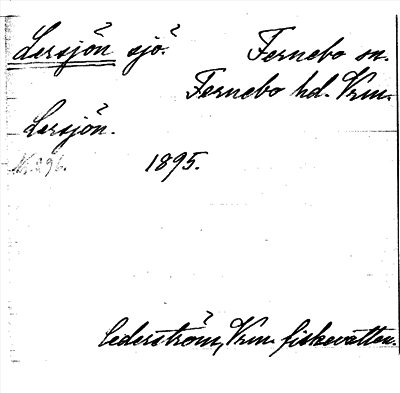 Lersjön sjö. Fernebo sn.
Fernebo hd. Vrm.
Lersjön.
N. 296. 1895.
Cederström, Vrm. fiskevatten.